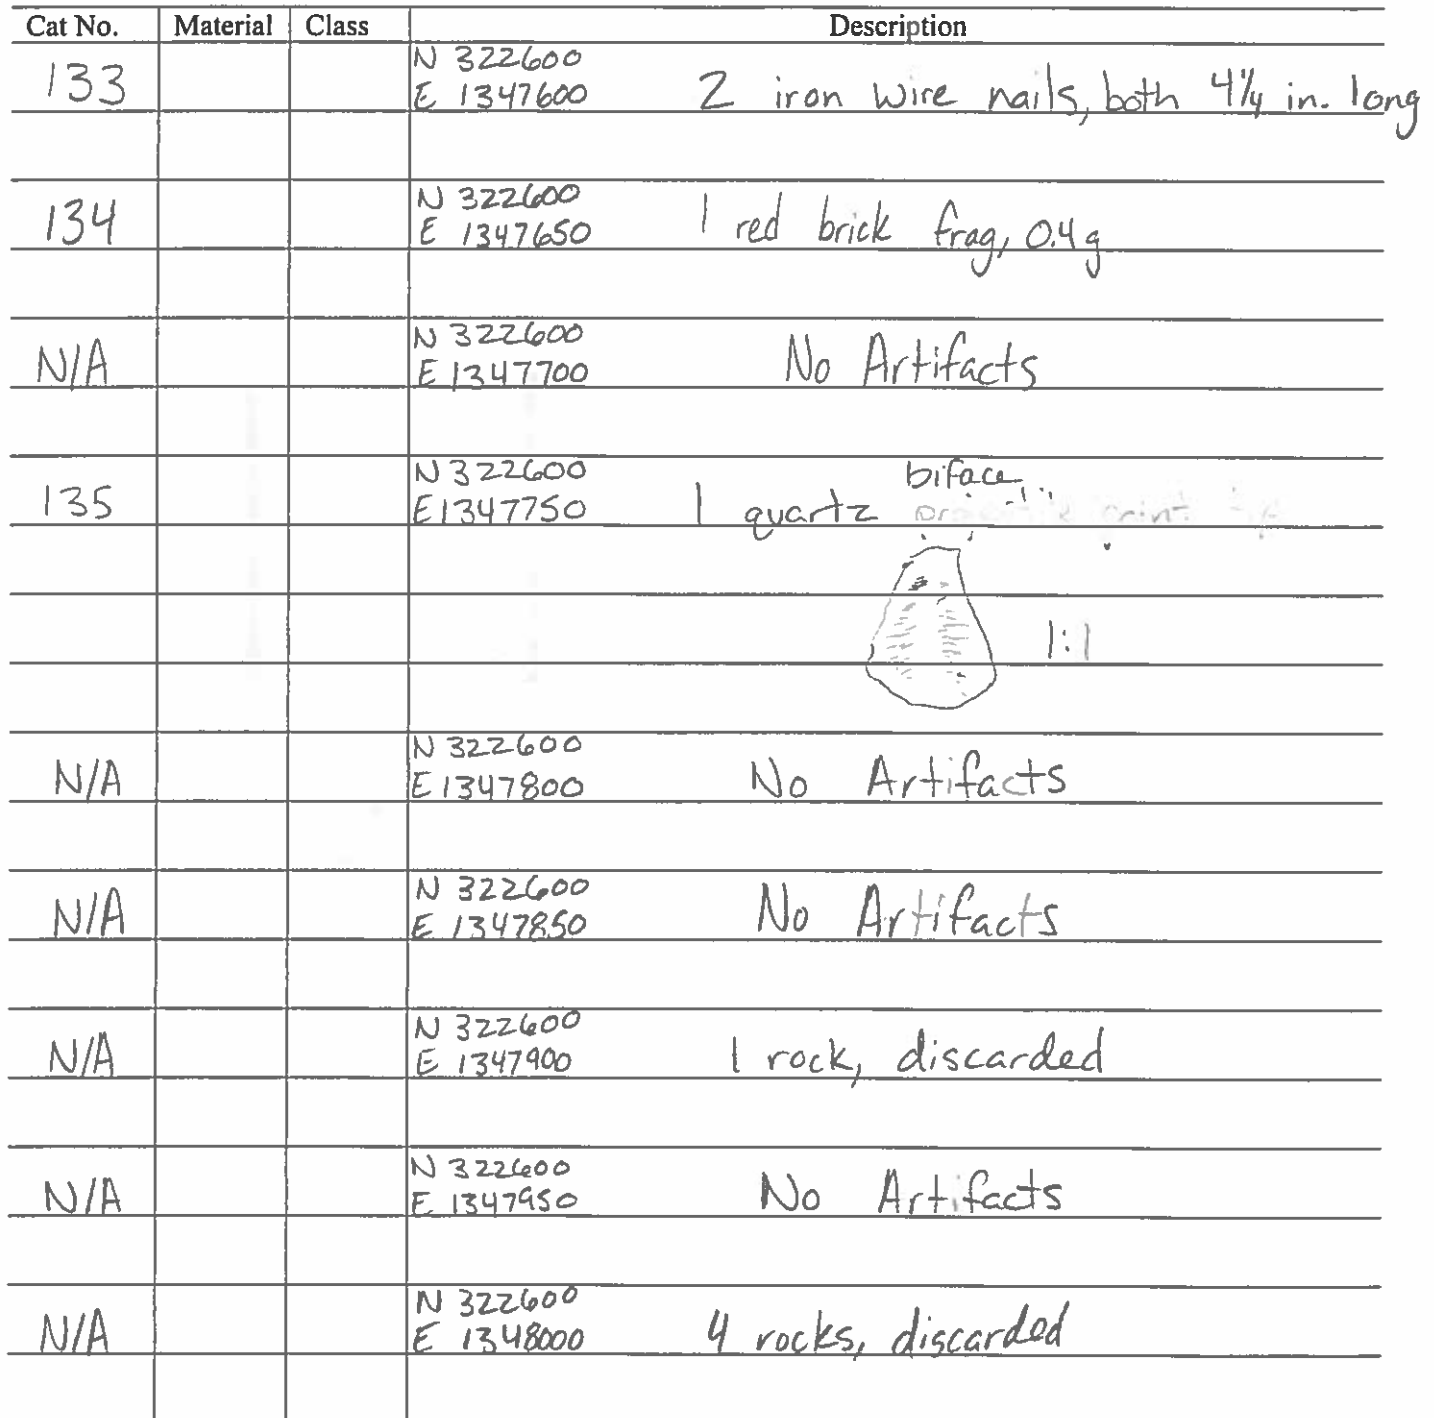 Cat No. Material Class Description
N 322600
133 E 1347600 2 iron wire nails, both 4 1/4 in. long
N 322600
134 E 1347650 1 red brick frag, 0.4g
N 322600
N/A E 1347700 No Artifacts
N 322600 biface
135 E 1347750 1 quartz
1:1
N 322600
N/A E 1347800 No Artifacts
N 322600
N/A E 1347850 No Artifacts
N 322600
N/A E 1347900 1 rock, discarded
N 322600
N/A E 1347950 No Artifacts
N 322600
N/A E 1348000 4 rocks, discarded